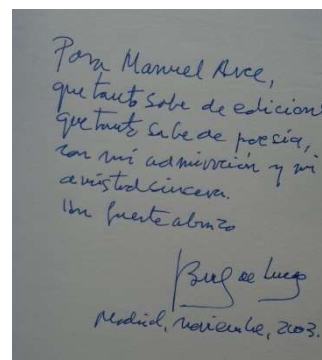 Para Manuel Arce,
que tanto sabe de edición
que tanto sabe de poesía,
con mi admiración y mi
amistad sincera.
Un fuerte abrazo
de Luego
Madrid, noviembre, 2003.